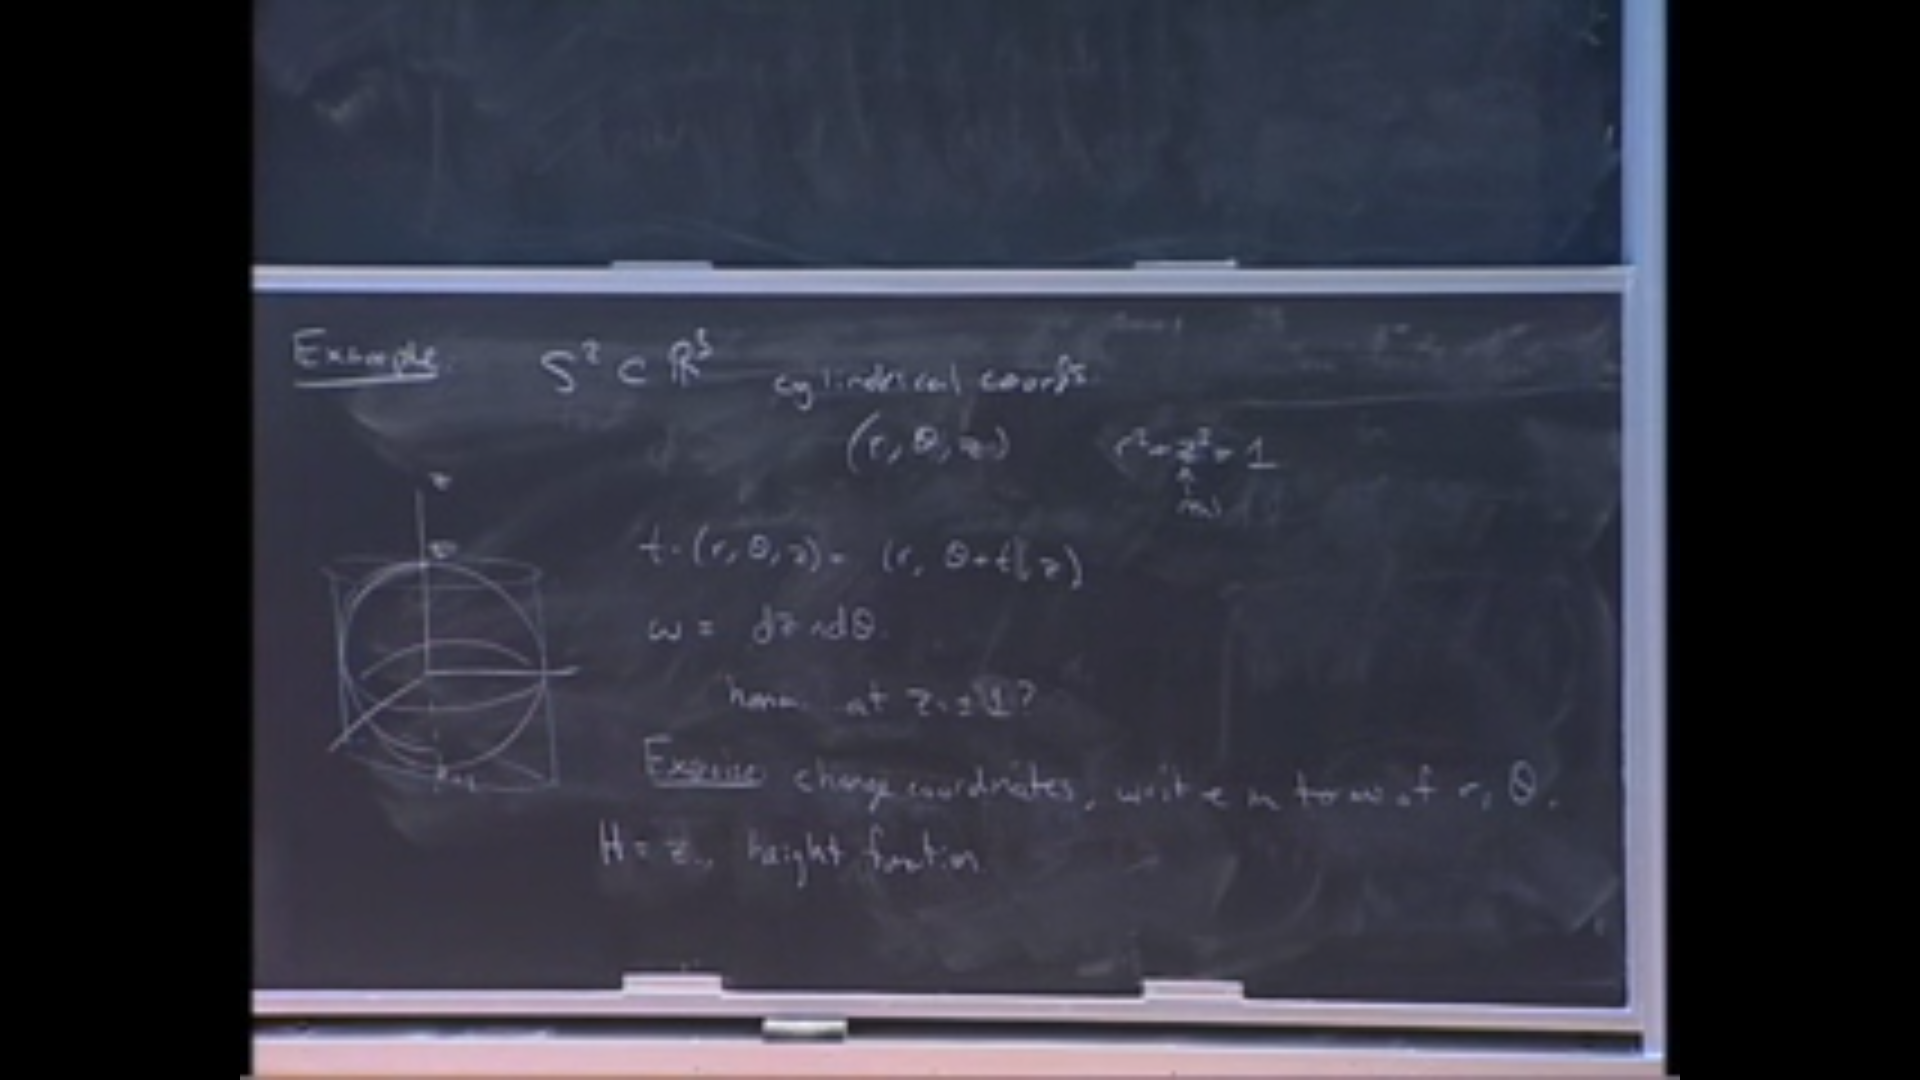 Example. S² ⊂ ℝ³ cylindrical coords.
(r, θ, z) r² + z² = 1
z
t·(r, θ, z) = (r, θ+t, z)
ω = dz ∧ dθ.
at z = ±1?
Exercise: change coordinates, write in terms of r, θ.
H = z, height function.